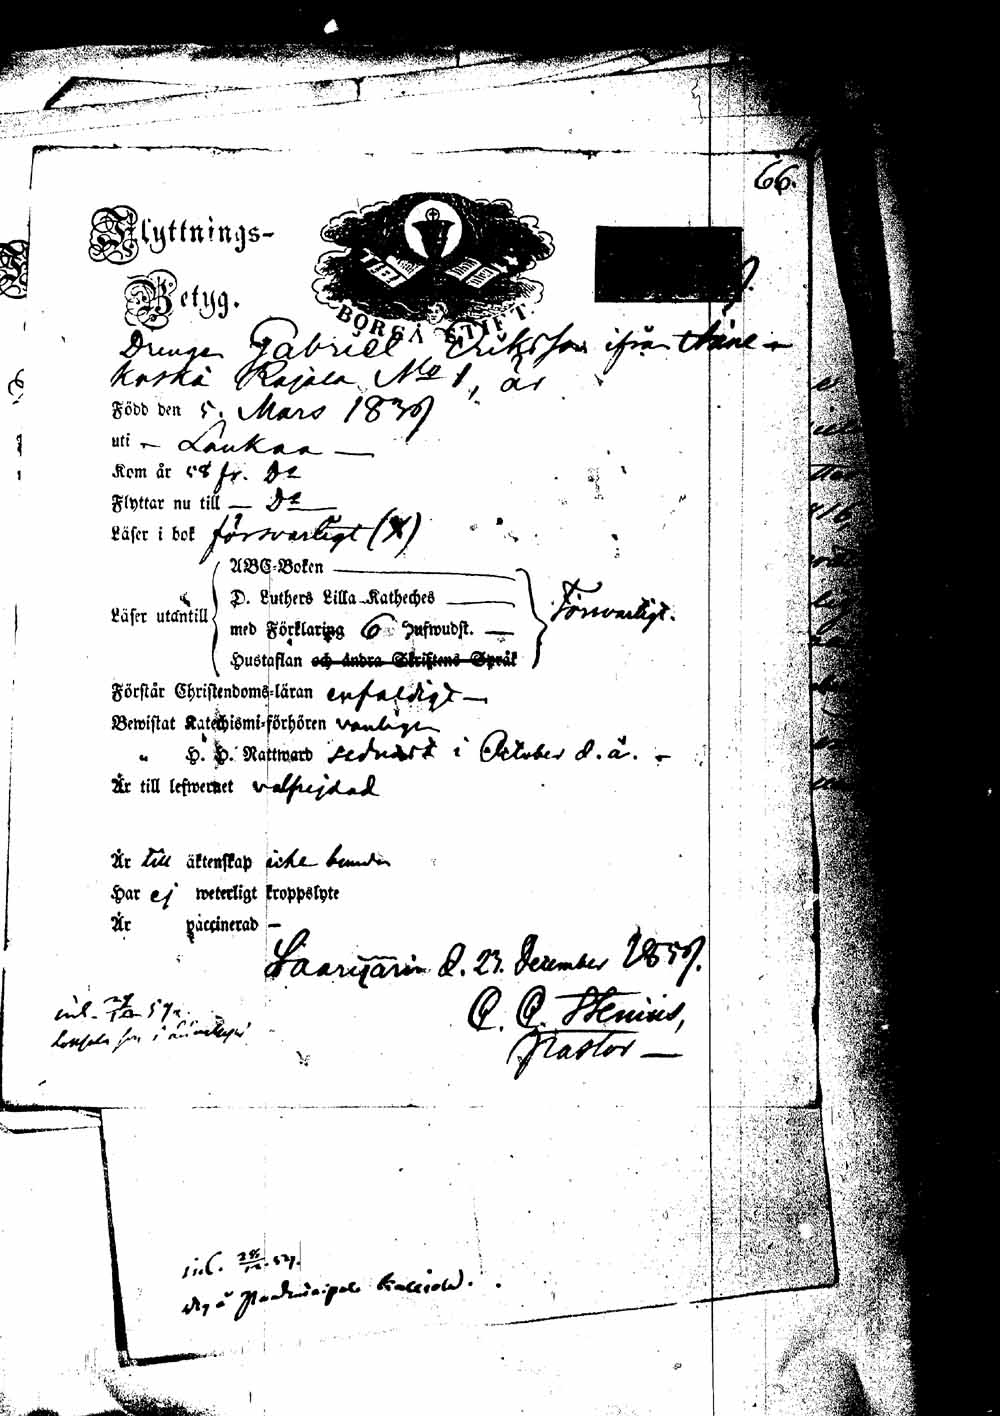 66.
Flyttnings-
Betyg.
BORGÅ STIFT.
Drengen Gabriel Eriksson ifrånÄäne-
koski Rajala No 1, är
Född den 5. Mars 1839
uti - Laukaa -
Kom år 58 fr. Do
Flyttar nu till - Do
Läser i bok försvarligt (X)
ABC-Boken
D. Luthers Lilla Katheches
Läser utantill
med Förklaring 6 Hufwudst. -
Försvarligt.
Hustaflan och andra Skriftens Språk
Förstår Christendoms-läran enfaldigt -
Bewistat Katechismi-förhören vanligen
" H. H. Nattward sednast i October d. å. -
Är till lefwernet välfrejdad
Är till äktenskap icke bunden
Har ej weterligt kroppslyte
Är vaccinerad -
Saarijärvi d. 23. December 1859.
C. C. Stenius,
Pastor -
inl.
inl. 28/12 59.